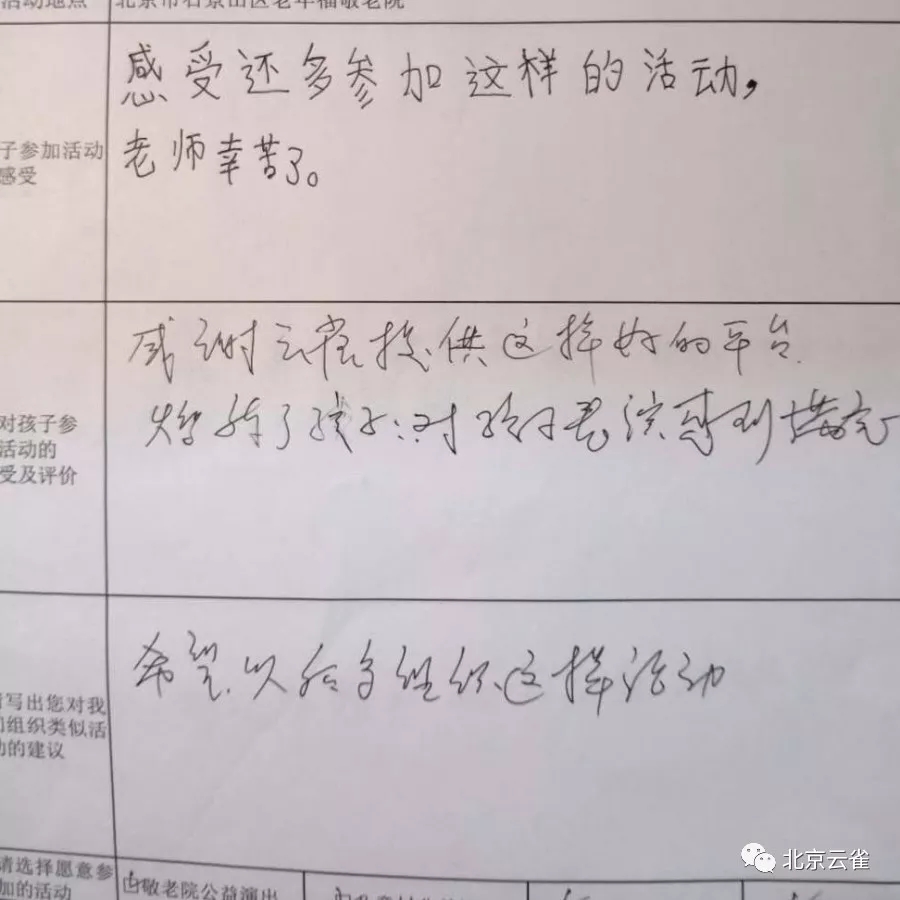 活动地点 北京市石景山区老年福敬老院
子参加活动
感受
感受还多参加这样的活动,
老师幸苦了。
对孩子参
活动的
受及评价
感谢云雀提供这样好的平台.
锻炼了孩子:对孩子表演感到满意
写出您对我
们组织类似活
动的建议
希望以后多组织这样活动
请选择愿意参
加的活动
敬老院公益演出
北京云雀